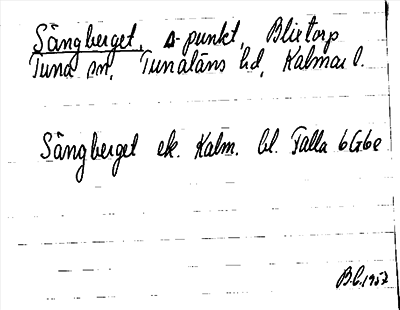 Sängberget, Δ-punkt, Blixtorp
Tuna sn, Tunaläns hd, Kalmar l.
Sängberget ek. Kalm. bl. Falla 6G6e
B.L. 1957